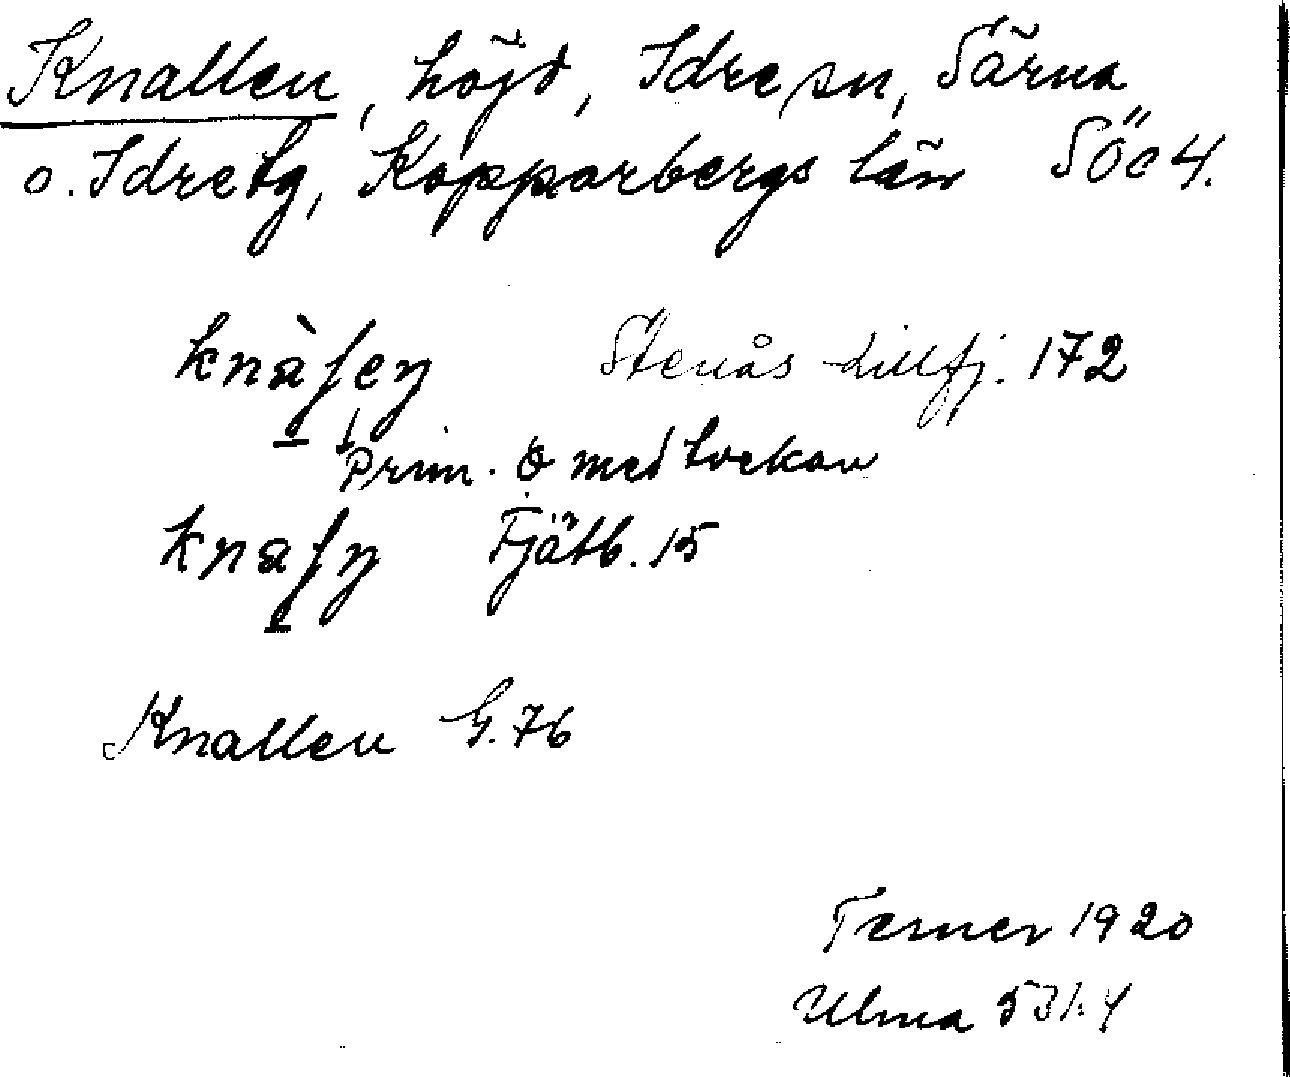 Knallen, höjd, Idre sn, Särna
o. Idre tg, Kopparbergs län SÖc4.
knàſeŋ Stenås Lillfj. 172
Prim. ö med tvekan
knaſŋ Fjätb. 15
Knallen G.76
Terner 1920
Ulma 531:4